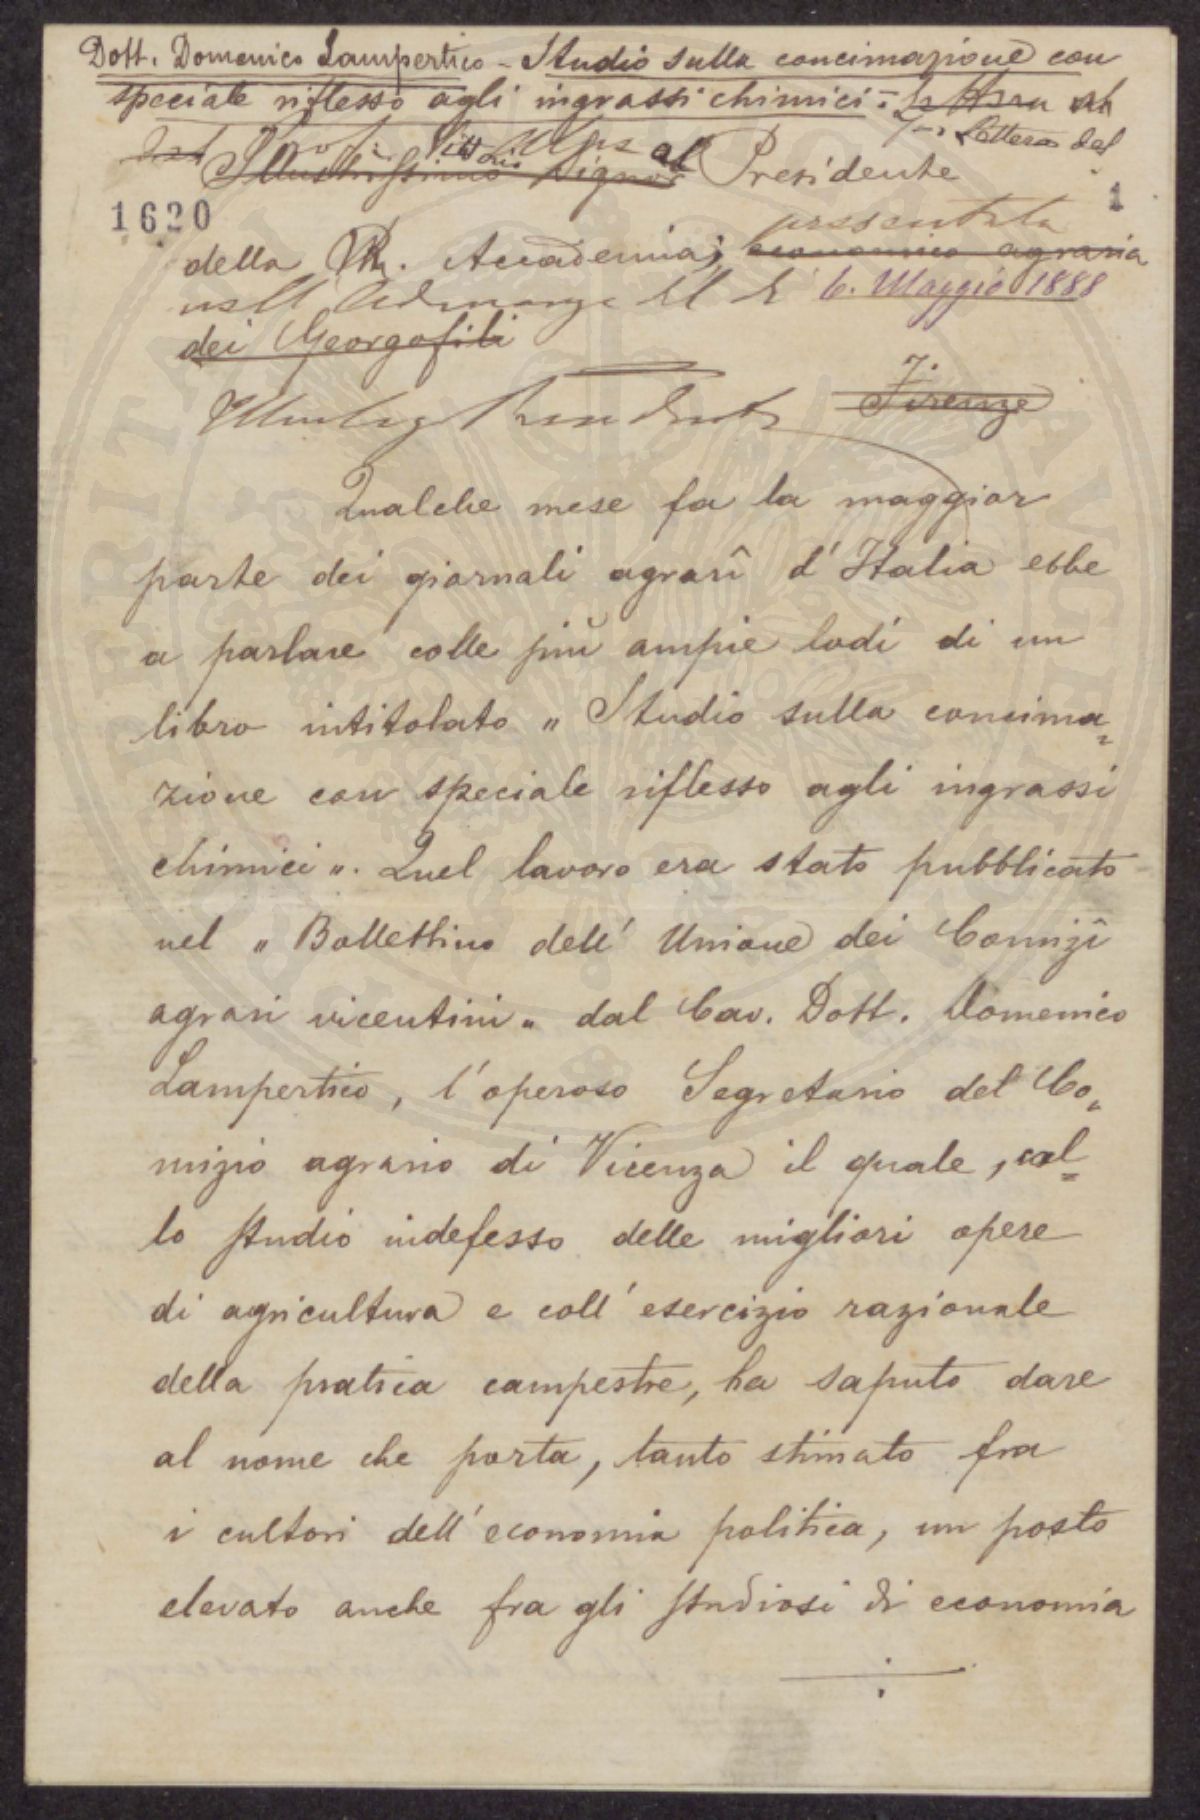 Dott. Domenico Lampertico - Studio sulla concimazione con
speciale riflesso agli ingrassi chimici - Lettera al
Lettera del
Dal Prof. Vittorio Alpe al
Illustrissimo Signor Presidente
1620
1
presentata
della R. Accademia, economico agraria
nell' Adunanza del dì 6. Maggio 1888
dei Georgofili
Firenze
Illustre Presidente
Qualche mese fa la maggior
parte dei giornali agrarî d'Italia ebbe
a parlare colle più ampie lodi di un
libro intitolato „ Studio sulla concima=
zione con speciale riflesso agli ingrassi
chimici „. Quel lavoro era stato pubblicato
nel „ Bollettino dell' Unione dei Comizî
agrari vicentini „ dal Cav. Dott. Domenico
Lampertico, l'operoso Segretario del Co=
mizio agrario di Vicenza il quale, col=
lo studio indefesso delle migliori opere
di agricultura e coll' esercizio razionale
della pratica campestre, ha saputo dare
al nome che porta, tanto stimato fra
i cultori dell' economia politica, un posto
elevato anche fra gli studiosi di economia